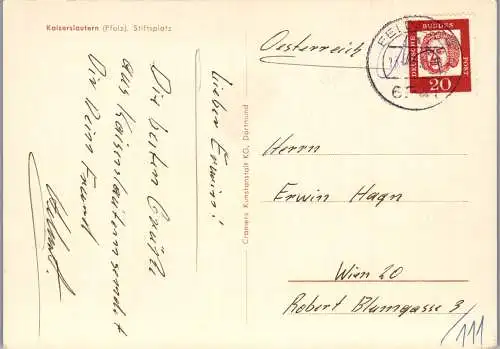 Kaiserslautern (Pfalz), Stiftsplatz
Lieber Erwin!
Die besten Grüße
aus Kaiserslautern sendet
Dir Dein Freund
Helmut.
Cramers Kunstanstalt KG, Dortmund
Oesterreich
DEUTSCHE BUNDESPOST
20
Herrn
Erwin Hagn
Wien 20
Robert Blumgasse 3
/111